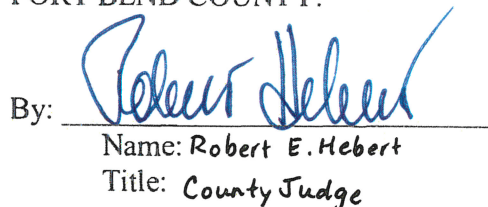 FORT BEND COUNTY:
By: Robert Hebert
Name: Robert E. Hebert
Title: County Judge